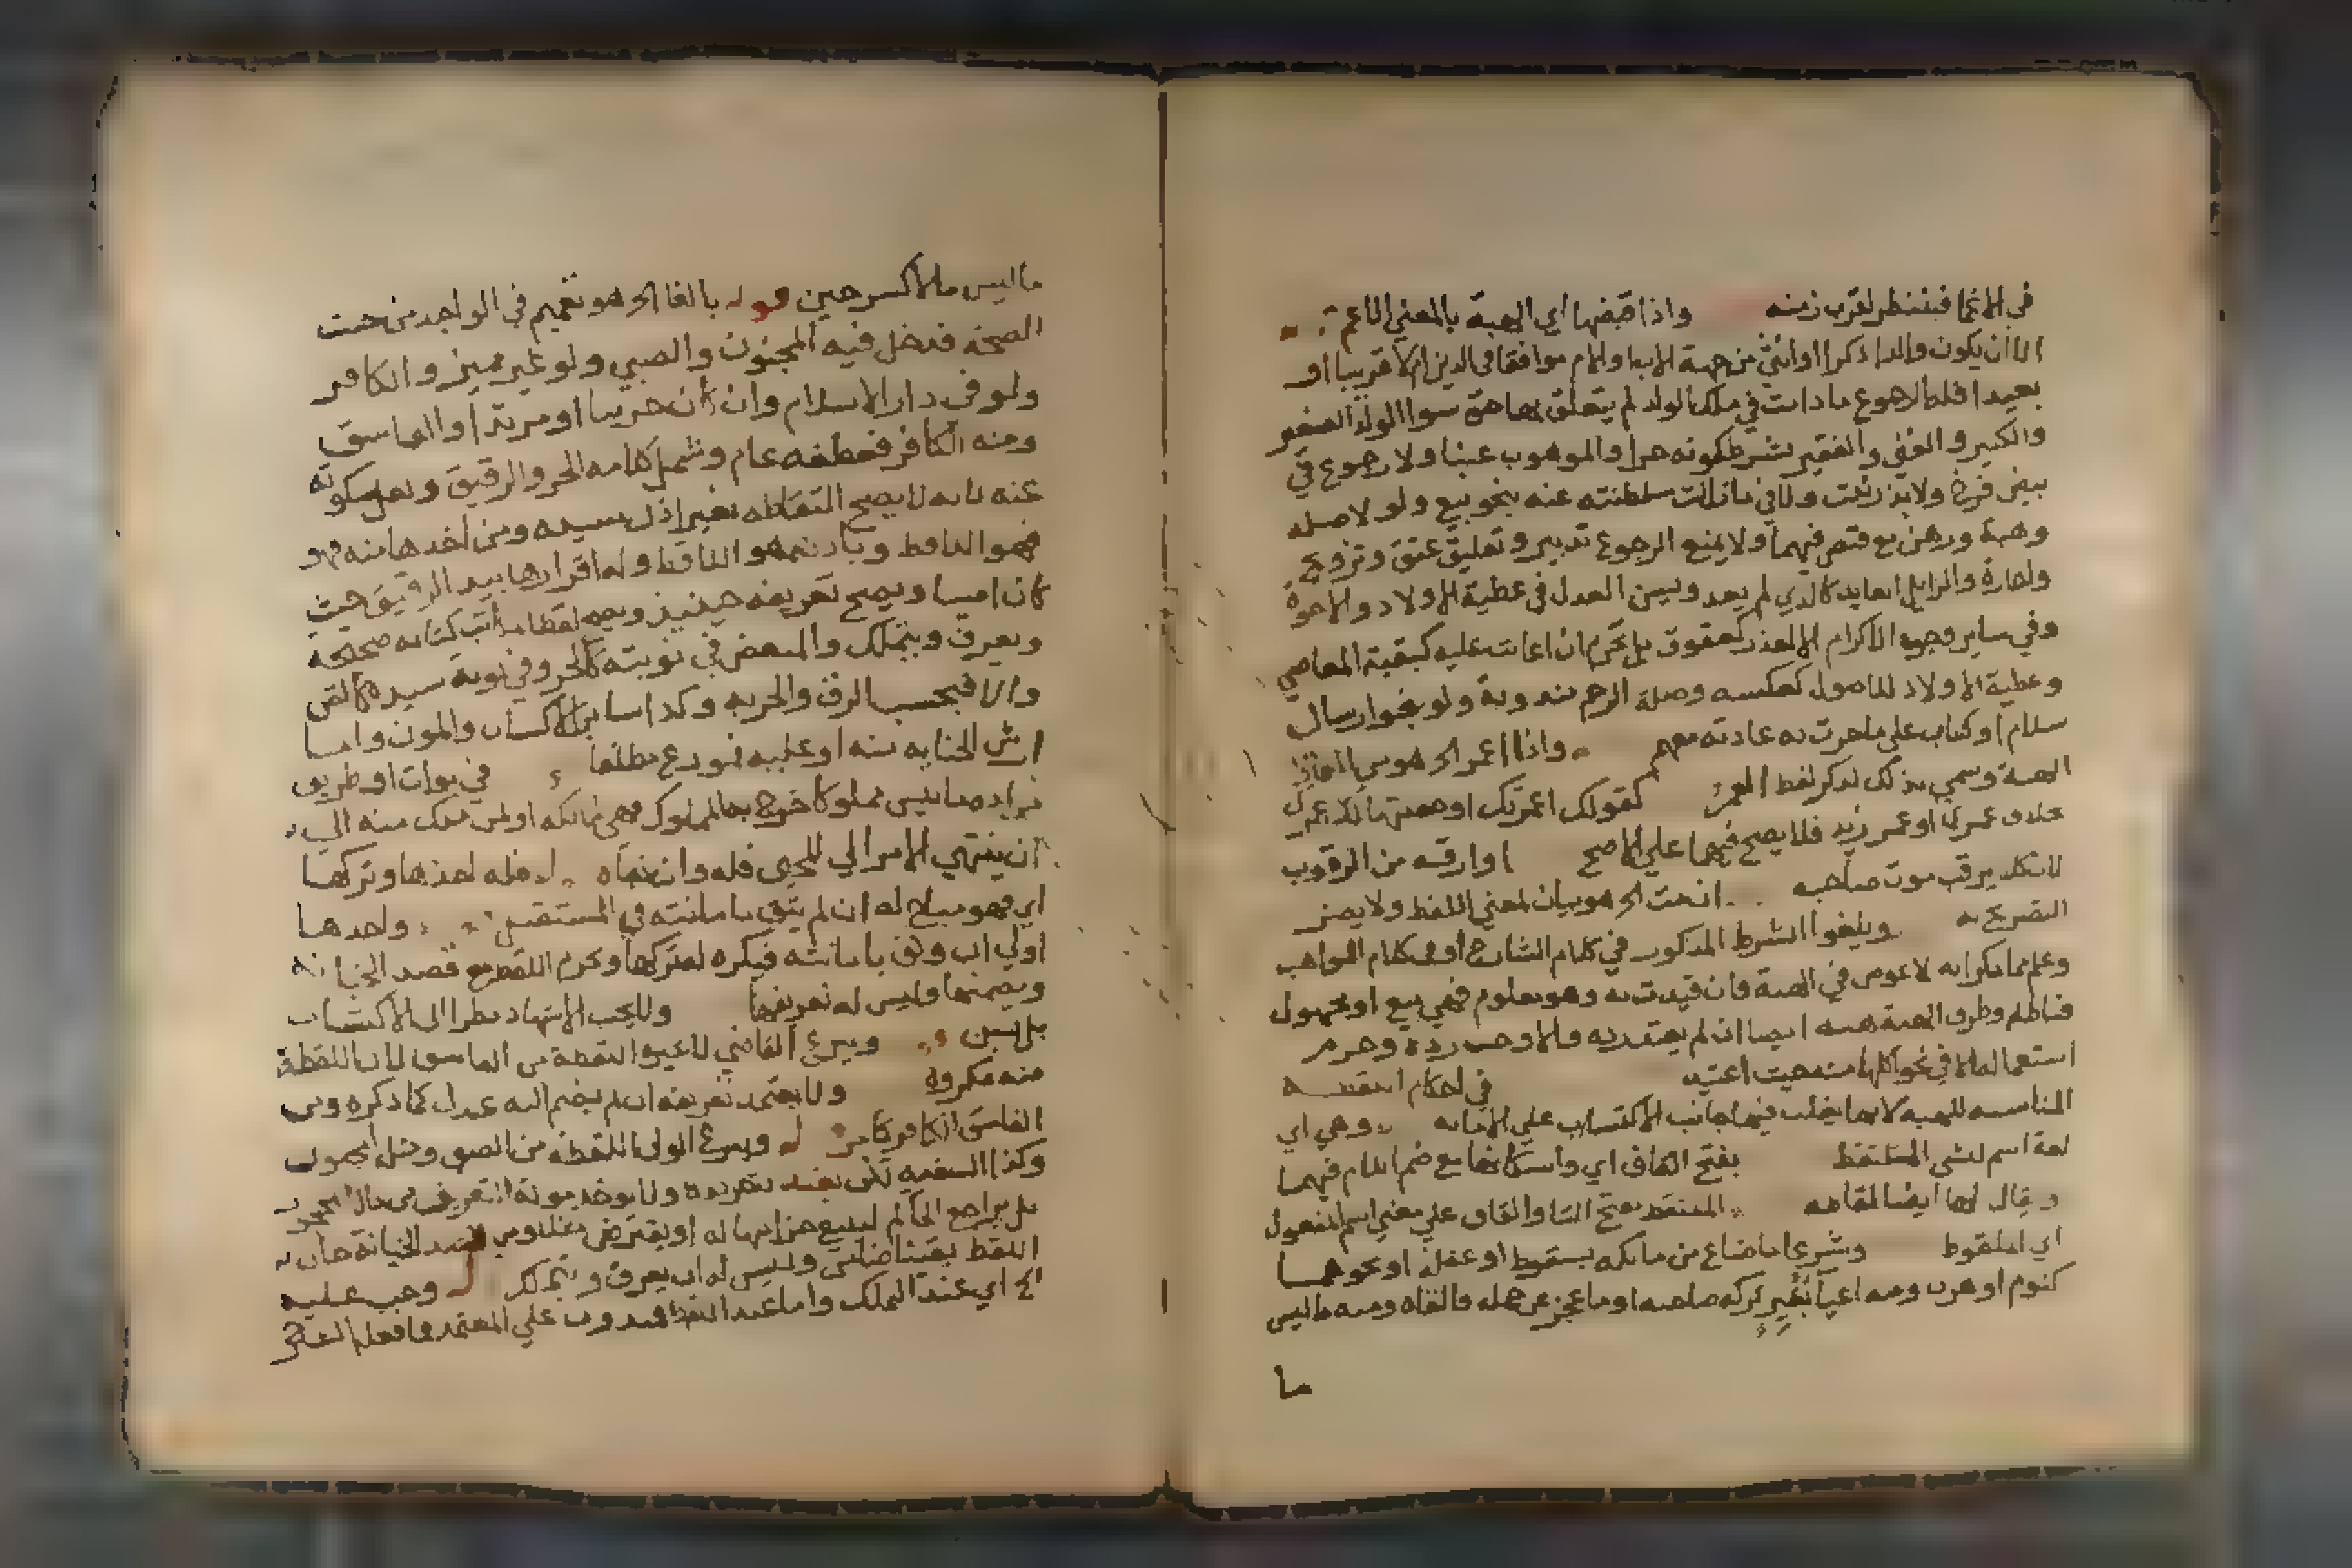 في الاغما فينتظر لقرب زمنه واذا قبضها اي الهبة بالمعني الاعم
الا ان يكون والدا ذكرا او انثي من جهة الاب او الام موافقا في الدين ام لا قريبا او
بعيدا فله الرجوع ما دامت في ملك الولد لم يتعلق بها حق سوا الولد الصغير
والكبير والغني والفقير بشرط كونه حرا والموهوب عينا ولا رجوع في
بيض فرخ ولا بذر نبت ولا في ما زالت سلطنته عنه بنحو بيع ولو لاصله
وهبة ورهن مع قبض فيهما ولا يمنع الرجوع تدبير وتعليق عتق وتزويج
واجارة والزايل العايد كالذي لم يعد ويسن العدل في عطية الاولاد والاخوة
وفي ساير وجوه الاكرام الا لعذر كعقوق بل تحرم ان اعانت عليه كبقية المعاصي
وعطية الاولاد للاصول كعكسه وصلة الرحم مندوبة ولو بنحو ارسال
سلام او كتاب علي ما جرت به عادته معهم واذا اعمر الخ هو من
الهبة وسمي بذلك لذكر لفظ العمر كقولك اعمرتك او جعلتها لك عمرك
بخلاف عمري او عمر زيد فلا يصح فيهما علي الاصح او ارقبه من الرقوب
لان كلا يرقب موت صاحبه انحت الخ هو بيان لمعني اللفظ ولا يضر
التصريح به ويلغوا الشرط المذكور في كلام الشارح او في كلام الواهب
وعلم مما ذكر انه لا عوض في الهبة فان قيدت به وهو معلوم فهي بيع او مجهول
فباطلة وظرف الهبة هبة ايضا ان لم يعتد رده والا وجب رده وحرم
استعماله الا في نحو اكلها منه حيث اعتيد في احكام اللقطة
المناسبه للهبه لانها يغلب فيها جانب الاكتساب علي الامانه وهي اي
لغة اسم للشي الملتقط بفتح القاف اي واسكانها مع ضم اللام فيهما
ويقال لها ايضا لقاطه الملتقط بفتح التا والقاف علي معني اسم المفعول
اي الملقوط وشرعا ما ضاع من مالكه بسقوط او غفلة او نحوهما
كنوم او هرب ومنه اعيا بعير تركه صاحبه او ما عجز عن حمله فالقاه ومنه ما ليس
ما
ما ليس مالا كسرجين قوله بالغا الخ هو تعميم في الواجد من حيث
الصحة فدخل فيه المجنون والصبي ولو غير مميز والكافر
ولو في دار الاسلام وان كان حربيا او مرتدا والفاسق
ومنه الكافر فعطفه عام وشمل كلامه الحر والرقيق ولعل سكوته
عنه لانه لا يصح التقاطه بغير اذن سيده ومن اخذها منه فهو
فهو اللاقط وباذنه هو اللاقط وله اقرارها بيد الرقيق حيث
كان امينا ويصح تعريفه حينيذ ويصح لقط مكاتب كتابه صحيحة
ويعرف ويتملك والمبعض في نوبته كالحر وفي نوبة سيده كالقن
والا فبحسب الرق والحريه وكذا ساير الاكساب والمون واما
ارش الجنايه منه او عليه فيوزع مطلقا في موات او طريق
خرج بها المملوك فهي لمالكه او لمن ملك منه الي
ان ينتهي الامر الي المحيي فله وان نفاه فله اخذها وتركها
اي فهو مباح له ان لم يثق بامانته في المستقبل واخذها
اولي ان وثق بامانته فيكره له تركها ويحرم اللقط مع قصد الخيانه
ويضمنها وليس له تعريفها ولا يجب الاشهاد نظرا الي الاكتساب
بل يسن وينزع القاضي اللقطة من الفاسق لان اللقطة
منه مكروه ولا يعتمد تعريفه ان لم يضم اليه عدل كما ذكره ومن
الفاسق الكافر كما مر وينزع الولي اللقطه من الصبي ومثل المجنون
وكذا السفيه لكن تعريفه ولا يوخذ مونة التعريف من مال
بل يراجع الحاكم ليبيع جزا منها له او يقترض قصد الخيانة
اللقط وليس له ان يعرف ويتملك وجب عليه
الخ اي عند التملك واما عند اللقط فمندوب علي المعتمد